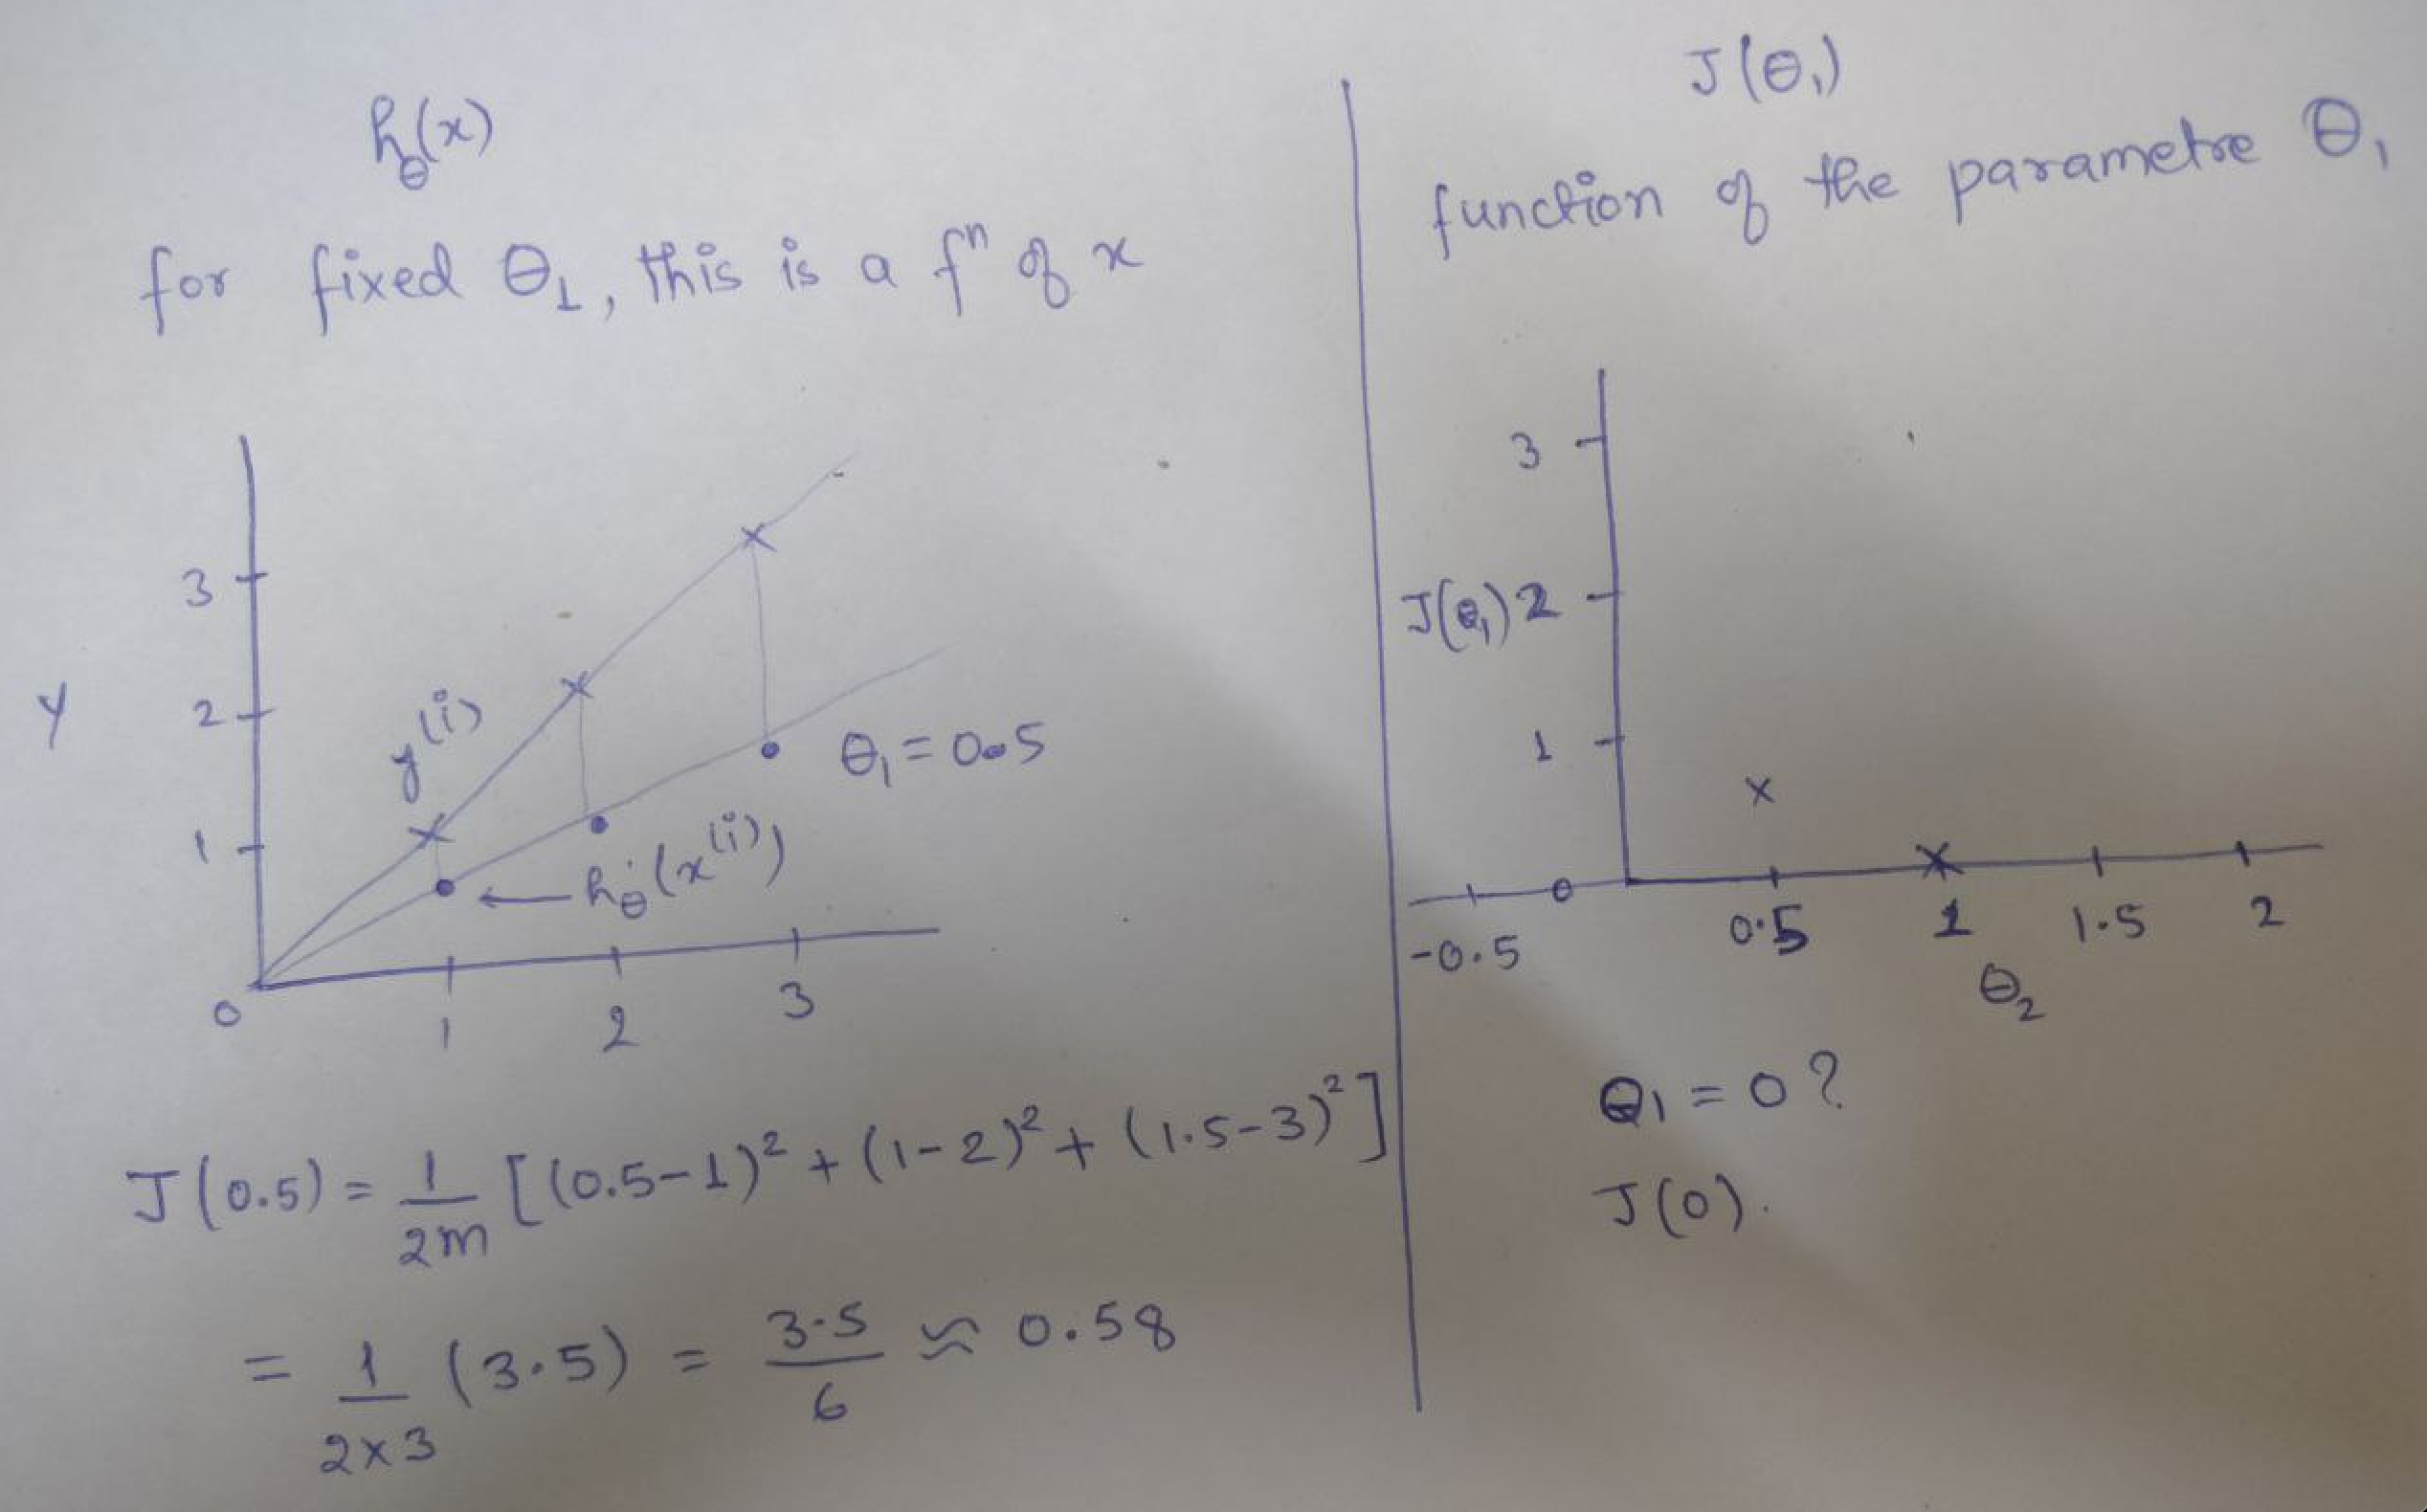 h_θ(x)
for fixed θ₁, this is a fⁿ of x
3
2
1
Y
y⁽ⁱ⁾
θ₁ = 0.5
h_θ(x⁽ⁱ⁾)
0
1 2 3
J(0.5) = 1/2m [(0.5-1)² + (1-2)² + (1.5-3)²]
= 1/2×3 (3.5) = 3.5/6 ≈ 0.58
J(θ₁)
function of the parametre θ₁
3
J(θ₁) 2
1
-0.5 0 0.5 1 1.5 2
θ₂
θ₁ = 0 ?
J(0).